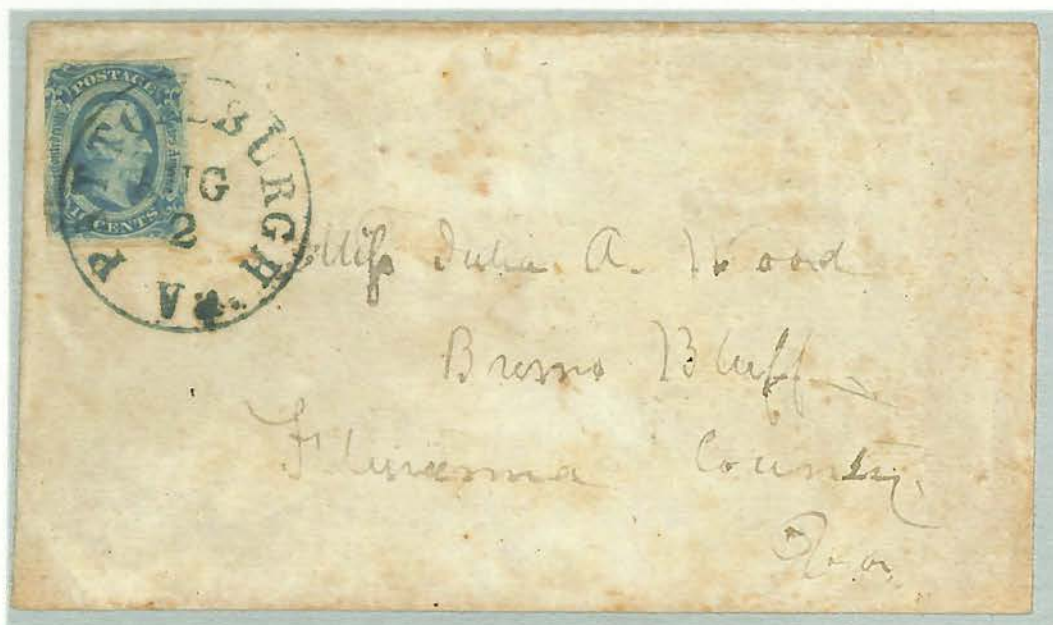 POSTAGE
CENTS
PATTONSBURGH
AUG
2
VA
Miss Julia A. Wood
Bremo Bluff
Fluvanna County,
Va.